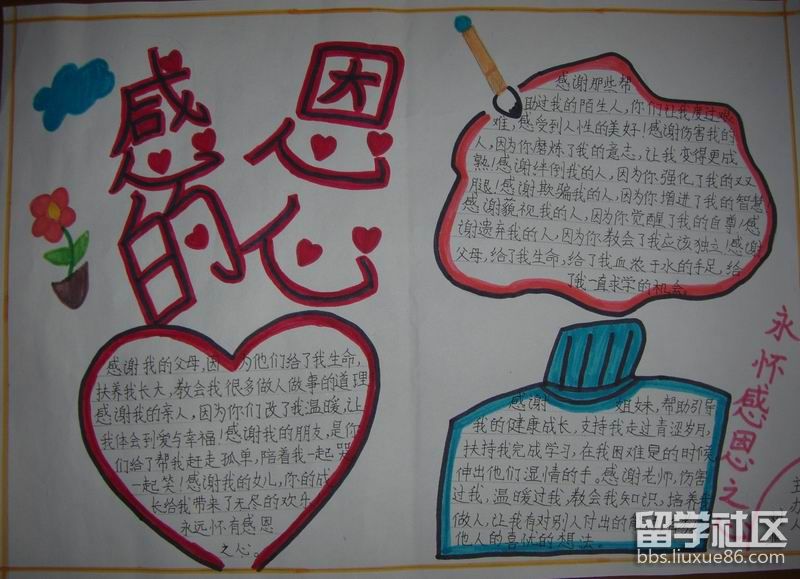 感恩
的心
感谢我的父母,因为他们给了我生命,
扶养我长大,教会我很多做人做事的道理
感谢我的亲人,因为你们改了我温暖,让
我体会到爱与幸福!感谢我的朋友,是你
们给了帮我赶走孤单,陪着我一起哭
一起笑!感谢我的女儿,你的成
长给我带来了无尽的欢乐
永远怀有感恩
之心。
感谢那些帮
助过我的陌生人,你们让我度过难
难,感受到人性的美好!感谢伤害我的
人,因为你磨炼了我的意志,让我变得更成
熟!感谢绊倒我的人,因为你强化了我的双
腿!感谢欺骗我的人,因为你增进了我的智慧
感谢藐视我的人,因为你觉醒了我的自尊!感
谢遗弃我的人,因为你教会了我应该独立!感谢
父母,给了我生命,给了我血浓于水的手足,给
了我一直求学的机会。
感谢 姐妹,帮助引导
我的健康成长,支持我走过青涩岁月,
扶持我完成学习,在我困难是的时候
伸出他们湿情的手。感谢老师,伤害
过我,温暖过我,教会我知识,培养我
做人,让我有对别人付出的
他人的喜忧的想法。
永怀感恩之
留学社区
bbs.liuxue86.com